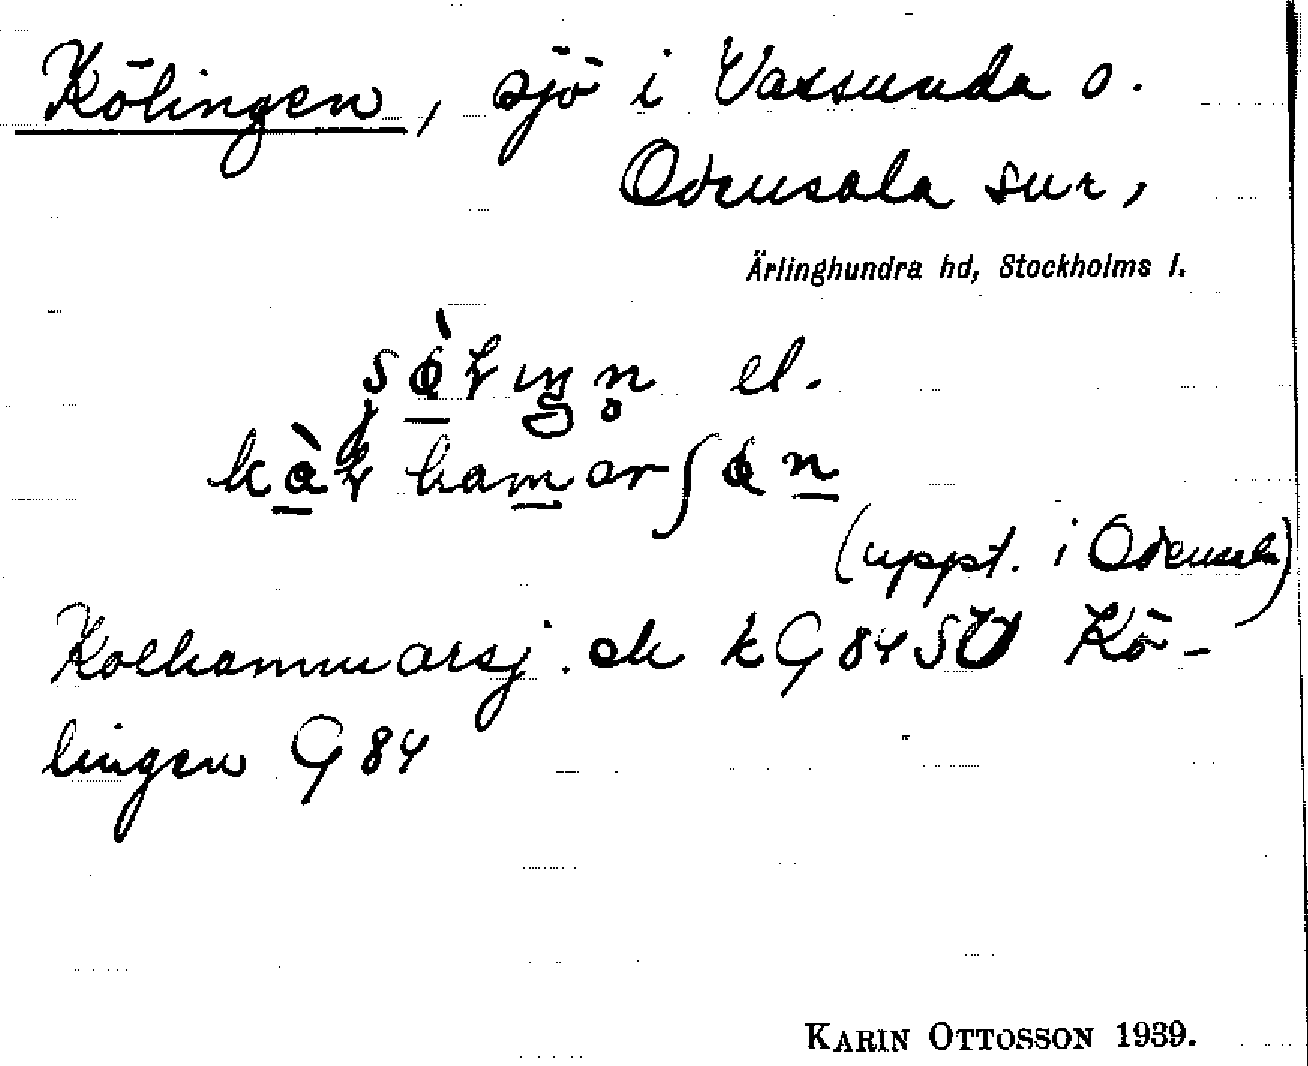 Kölingen, sjö i Vassunda o.
Odensala snr,
Ärlinghundra hd, Stockholms l.
el.
(uppt. i Odensala)
Kolhammarsj. ek kG 84 Kö-
lingen G 84
KARIN OTTOSSON 1939.